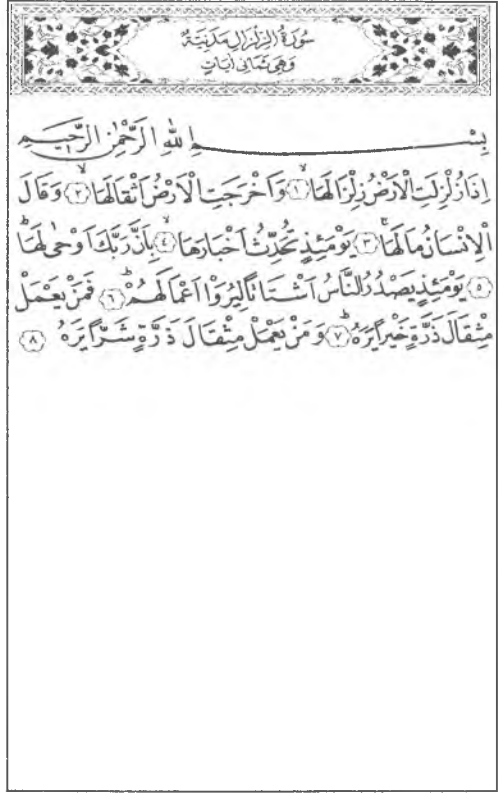 سُورَةُ الزِّلْزَالِ مَدَنِيَّةٌ
وَهِيَ ثَمَانِي اٰيَاتٍ
بِسْمِ اللّٰهِ الرَّحْمٰنِ الرَّحِيمِ
اِذَا زُلْزِلَتِ الْاَرْضُ زِلْزَالَهَاۙ ﴿١﴾ وَاَخْرَجَتِ الْاَرْضُ اَثْقَالَهَاۙ ﴿٢﴾ وَقَالَ
الْاِنْسَانُ مَالَهَاۚ ﴿٣﴾ يَوْمَئِذٍ تُحَدِّثُ اَخْبَارَهَاۙ ﴿٤﴾ بِاَنَّ رَبَّكَ اَوْحٰى لَهَاۜ
﴿٥﴾ يَوْمَئِذٍ يَصْدُرُ النَّاسُ اَشْتَاتًا لِيُرَوْا اَعْمَالَهُمْۜ ﴿٦﴾ فَمَنْ يَعْمَلْ
مِثْقَالَ ذَرَّةٍ خَيْرًا يَرَهُۜ ﴿٧﴾ وَمَنْ يَعْمَلْ مِثْقَالَ ذَرَّةٍ شَرًّا يَرَهُ ﴿٨﴾